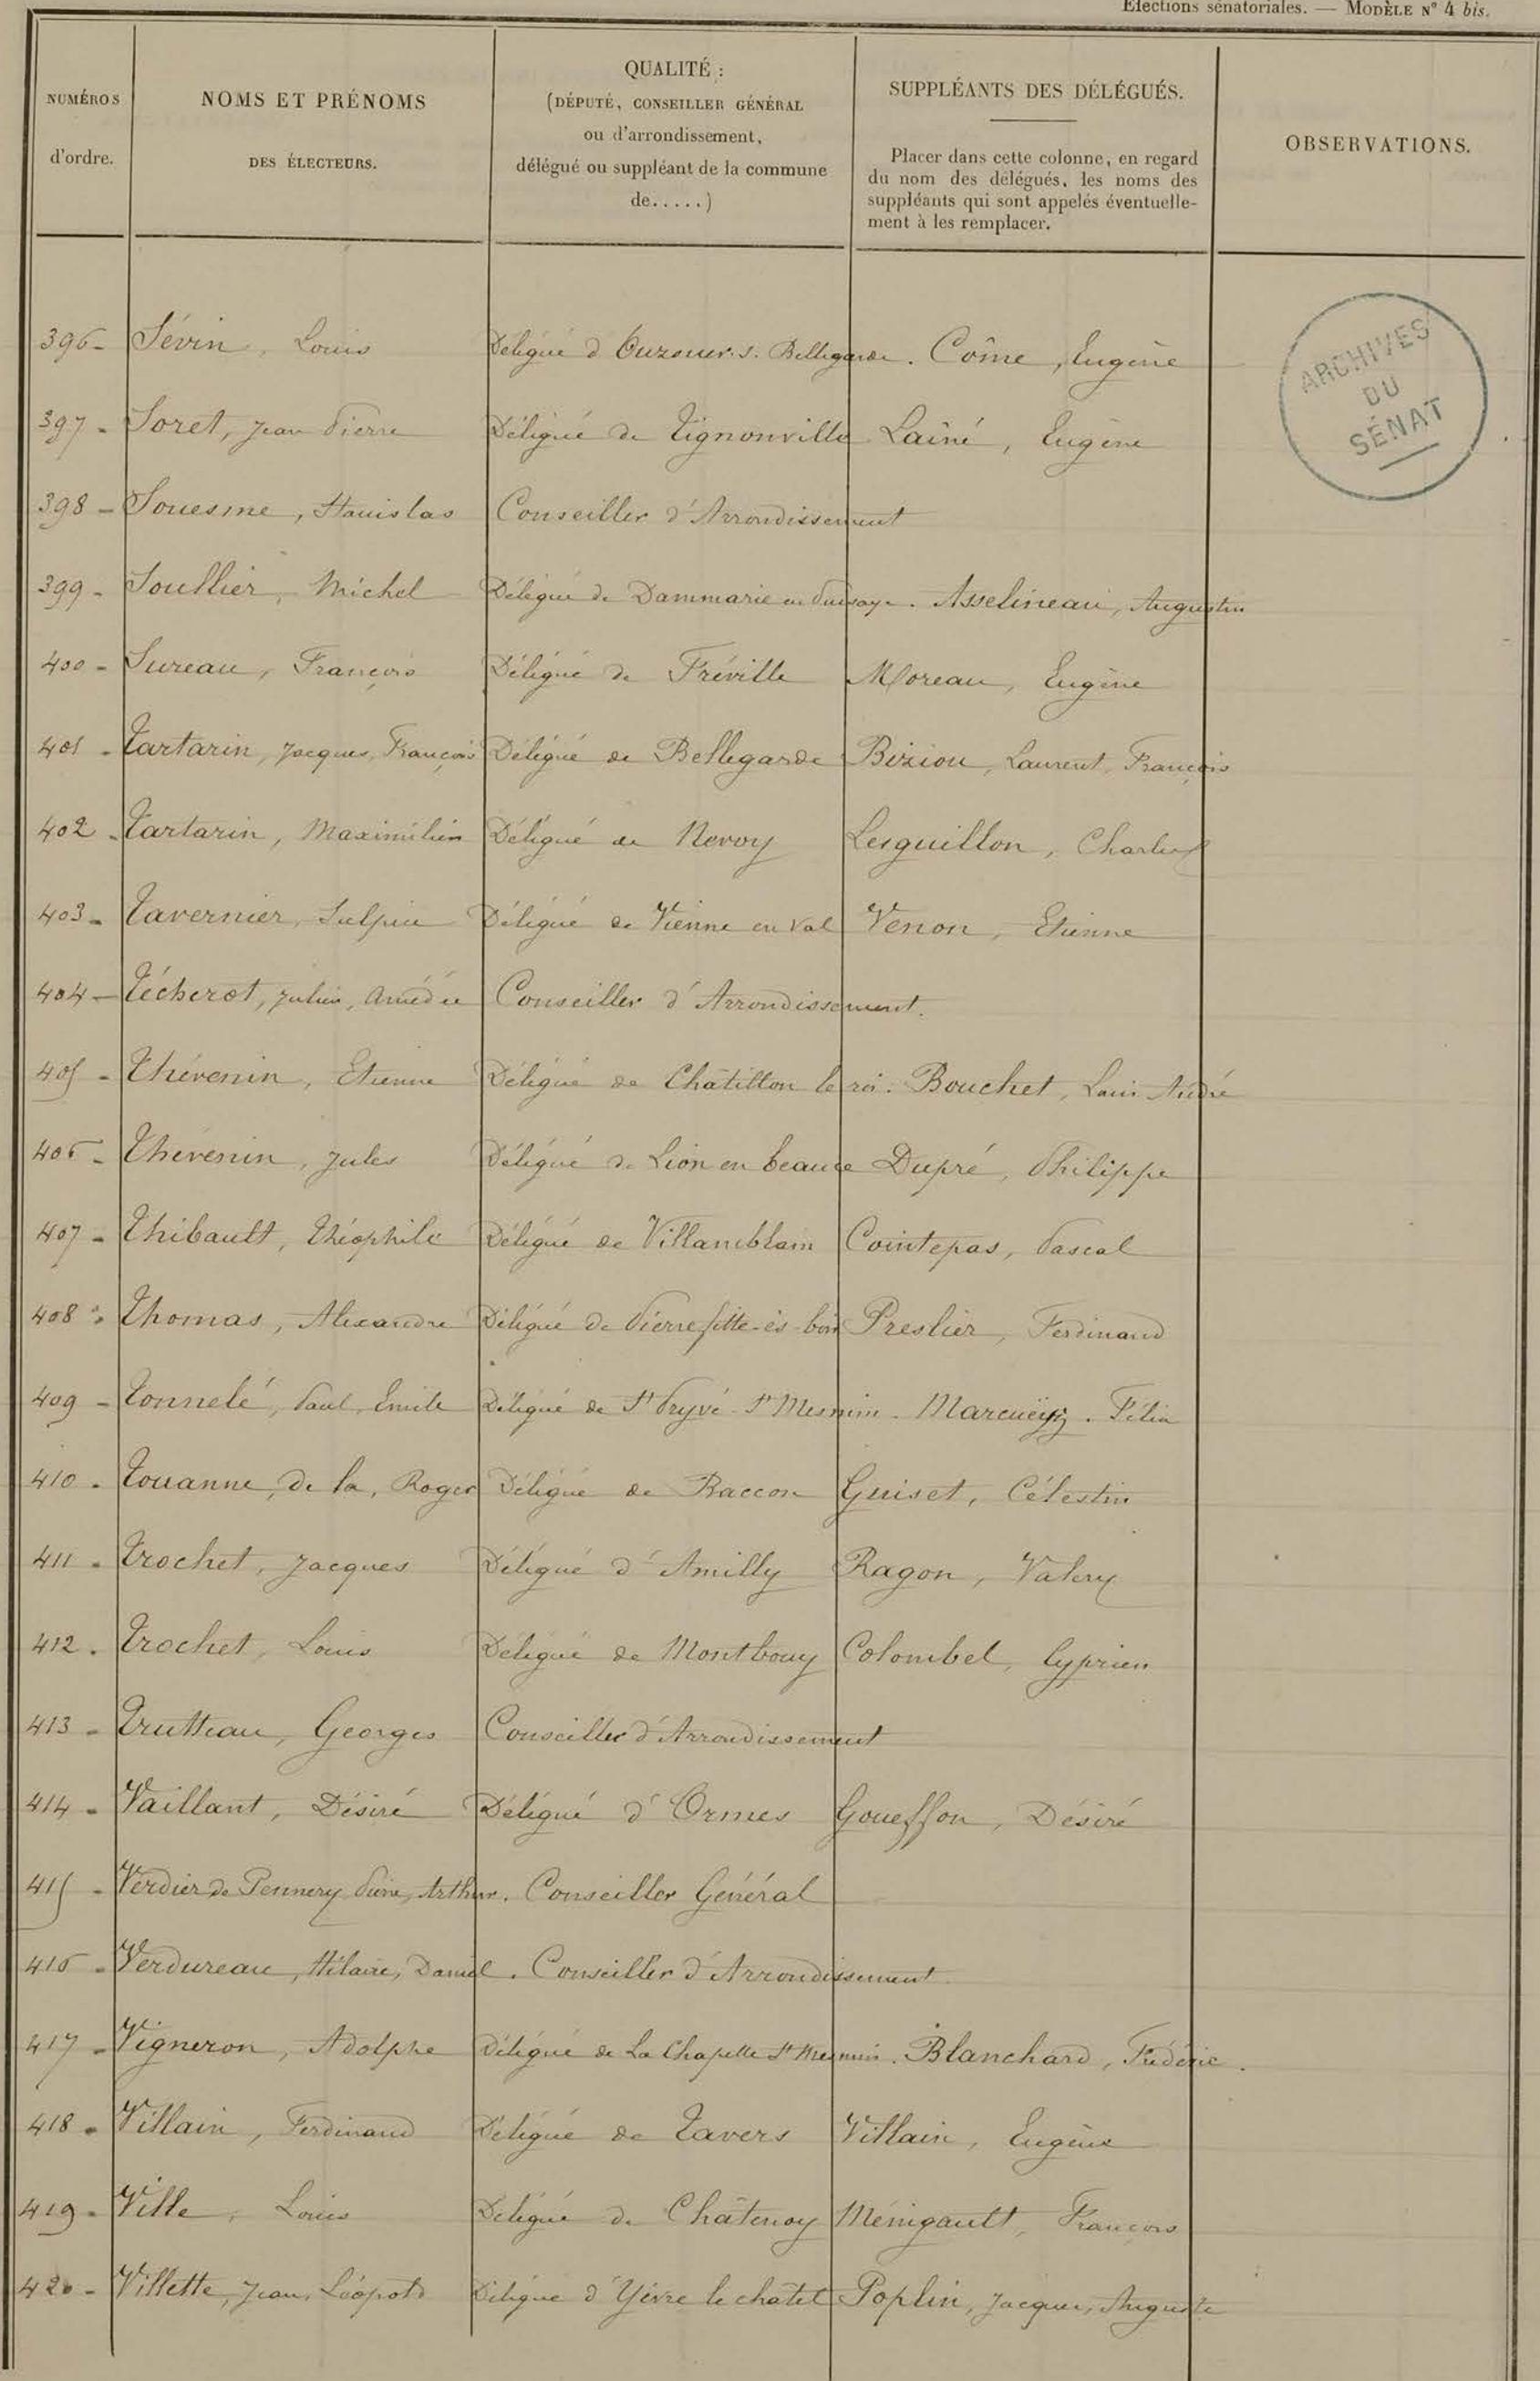 Elections sénatoriales. — MODÈLE Nº 4 bis.
NUMÉROS d'ordre.
NOMS ET PRÉNOMS
DES ÉLECTEURS.
QUALITÉ :
(DÉPUTÉ, CONSEILLER GÉNÉRAL
ou d'arrondissement,
délégué ou suppléant de la commune
de.....)
SUPPLÉANTS DES DÉLÉGUÉS.
Placer dans cette colonne, en regard
du nom des délégués, les noms des
suppléants qui sont appelés éventuelle-
ment à les remplacer.
OBSERVATIONS.
ARCHIVES
DU
SÉNAT
396 - Sévin, Louis Délégué d'Ouzouer s. Bellegarde. Côme, Eugène
397 - Soret, Jean Pierre Délégué de Tignonville Lainé, Eugène
398 - Souesme, Stanislas Conseiller d'Arrondissement
399 - Soullier, Michel Délégué de Dammarie en Puisaye. Asselineau, Augustin
400 - Sureau, François Délégué de Fréville Moreau, Eugène
401 - Tartarin, Jacques, François Délégué de Bellegarde Biziou, Laurent, François
402 - Tartarin, Maximilien Délégué de Nevoy Lesguillon, Charles
403 - Tavernier, Sulpice Délégué de Vienne en Val Venon, Etienne
404 - Técherot, Julien, Amédée Conseiller d'Arrondissement.
405 - Thévenin, Etienne Délégué de Châtillon le roi. Bouchet, Louis André
406 - Thévenin, Jules Délégué de Lion en beauce Dupré, Philippe
407 - Thibault, Théophile Délégué de Villamblain Cointepas, Pascal
408 - Thomas, Alexandre Délégué de Pierrefitte-ès-bois Preslier, Ferdinand
409 - Tonnelé, Paul, Emile Délégué de St Pryvé-St Mesmin - Félix
410 - Touanne, de la, Roger Délégué de Baccon Guiset, Célestin
411 - Trochet, Jacques Délégué d'Amilly Ragon, Valery
412 - Trochet, Louis Délégué de Montbouy Colombel, Cyprien
413 - Trutteau, Georges Conseiller d'Arrondissement
414 - Vaillant, Désiré Délégué d'Ormes Goueffon, Désiré
415 - Verdier de Pennery, Pierre, Arthur. Conseiller Général
416 - Verdureau, Hilaire, Daniel. Conseiller d'Arrondissement
417 - Vigneron, Adolphe Délégué de La Chapelle St Mesmin. Blanchard, Frédéric.
418 - Villain, Ferdinand Délégué de Tavers Villain, Eugène
419 - Ville, Louis Délégué de Châtenoy Ménigault, François
420 - Villette, Jean, Léopold Délégué d'Yèvre le châtel Poplin, Jacques, Auguste